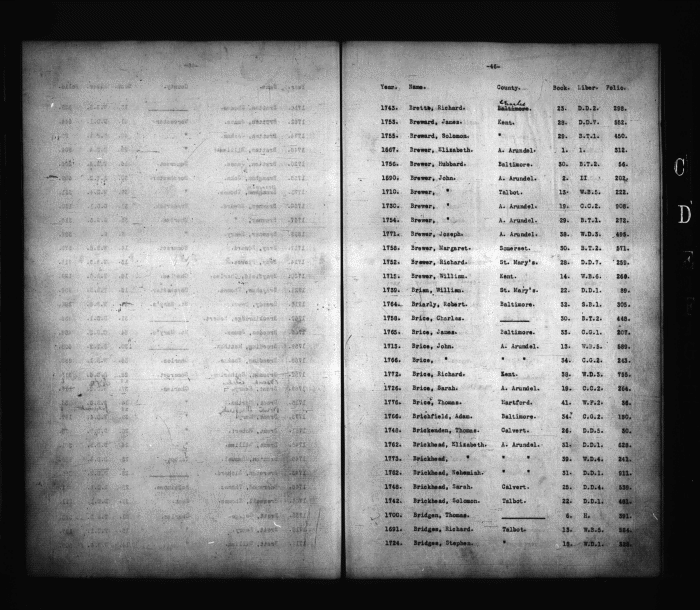 -46-
Year. Name. County. Book. Liber. Folio.
Charles
1743. Brette, Richard. Baltimore. 23. D.D.2. 298.
1753. Breward, James. Kent. 28. D.D.7. 552.
1755. Breward, Solomon. " 29. B.T.1. 450.
1667. Brewer, Elizabeth. A. Arundel. 1. 1. 312.
1756. Brewer, Hubbard. Baltimore. 30. B.T.2. 56.
1690. Brewer, John. A. Arundel. 2. II 202.
1710. Brewer, " Talbot. 13. W.B.5. 222.
1730. Brewer, " A. Arundel. 19. C.C.2. 906.
1754. Brewer, " A. Arundel. 29. B.T.1. 272.
1771. Brewer, Joseph. A. Arundel. 38. W.D.3. 495.
1758. Brewer, Margaret. Somerset. 30. B.T.2. 571.
1752. Brewer, Richard. St. Mary's. 28. D.D.7. 259.
1715. Brewer, William. Kent. 14. W.B.6. 269.
1739. Brian, William. St. Mary's. 22. D.D.1. 89.
1764. Briarly, Robert. Baltimore. 32. S.B.1. 305.
1758. Brice, Charles. 30. B.T.2. 448.
1765. Brice, James. Baltimore. 33. C.G.1. 207.
1713. Brice, John. A. Arundel. 13. W.B.5. 689.
1766. Brice, " " " 34. C.G.2. 243.
1772. Brice, Richard. Kent. 38. W.D.3. 755.
1726. Brice, Sarah. A. Arundel. 19. C.C.2. 264.
1776. Brice, Thomas. Hartford. 41. W.F.2. 56.
1766. Brichfield, Adam. Baltimore. 34. C.G.2. 190.
1748. Brickenden, Thomas. Calvert. 26. D.D.5. 50.
1762. Brickhead, Elizabeth. A. Arundel. 31. D.D.1. 628.
1773. Brickhead, " " " 39. W.D.4. 243.
1762. Brickhead, Nehemiah. " " 31. D.D.1. 912.
1745. Brickhead, Sarah. Calvert. 25. D.D.4. 538.
1742. Brickhead, Solomon. Talbot. 22. D.D.1. 401.
1700. Bridgen, Thomas. 6. H. 391.
1691. Bridges, Richard. Talbot. 13. W.B.5.
1724. Bridges, Stephen. " 18. W.D.1.
C
D
E